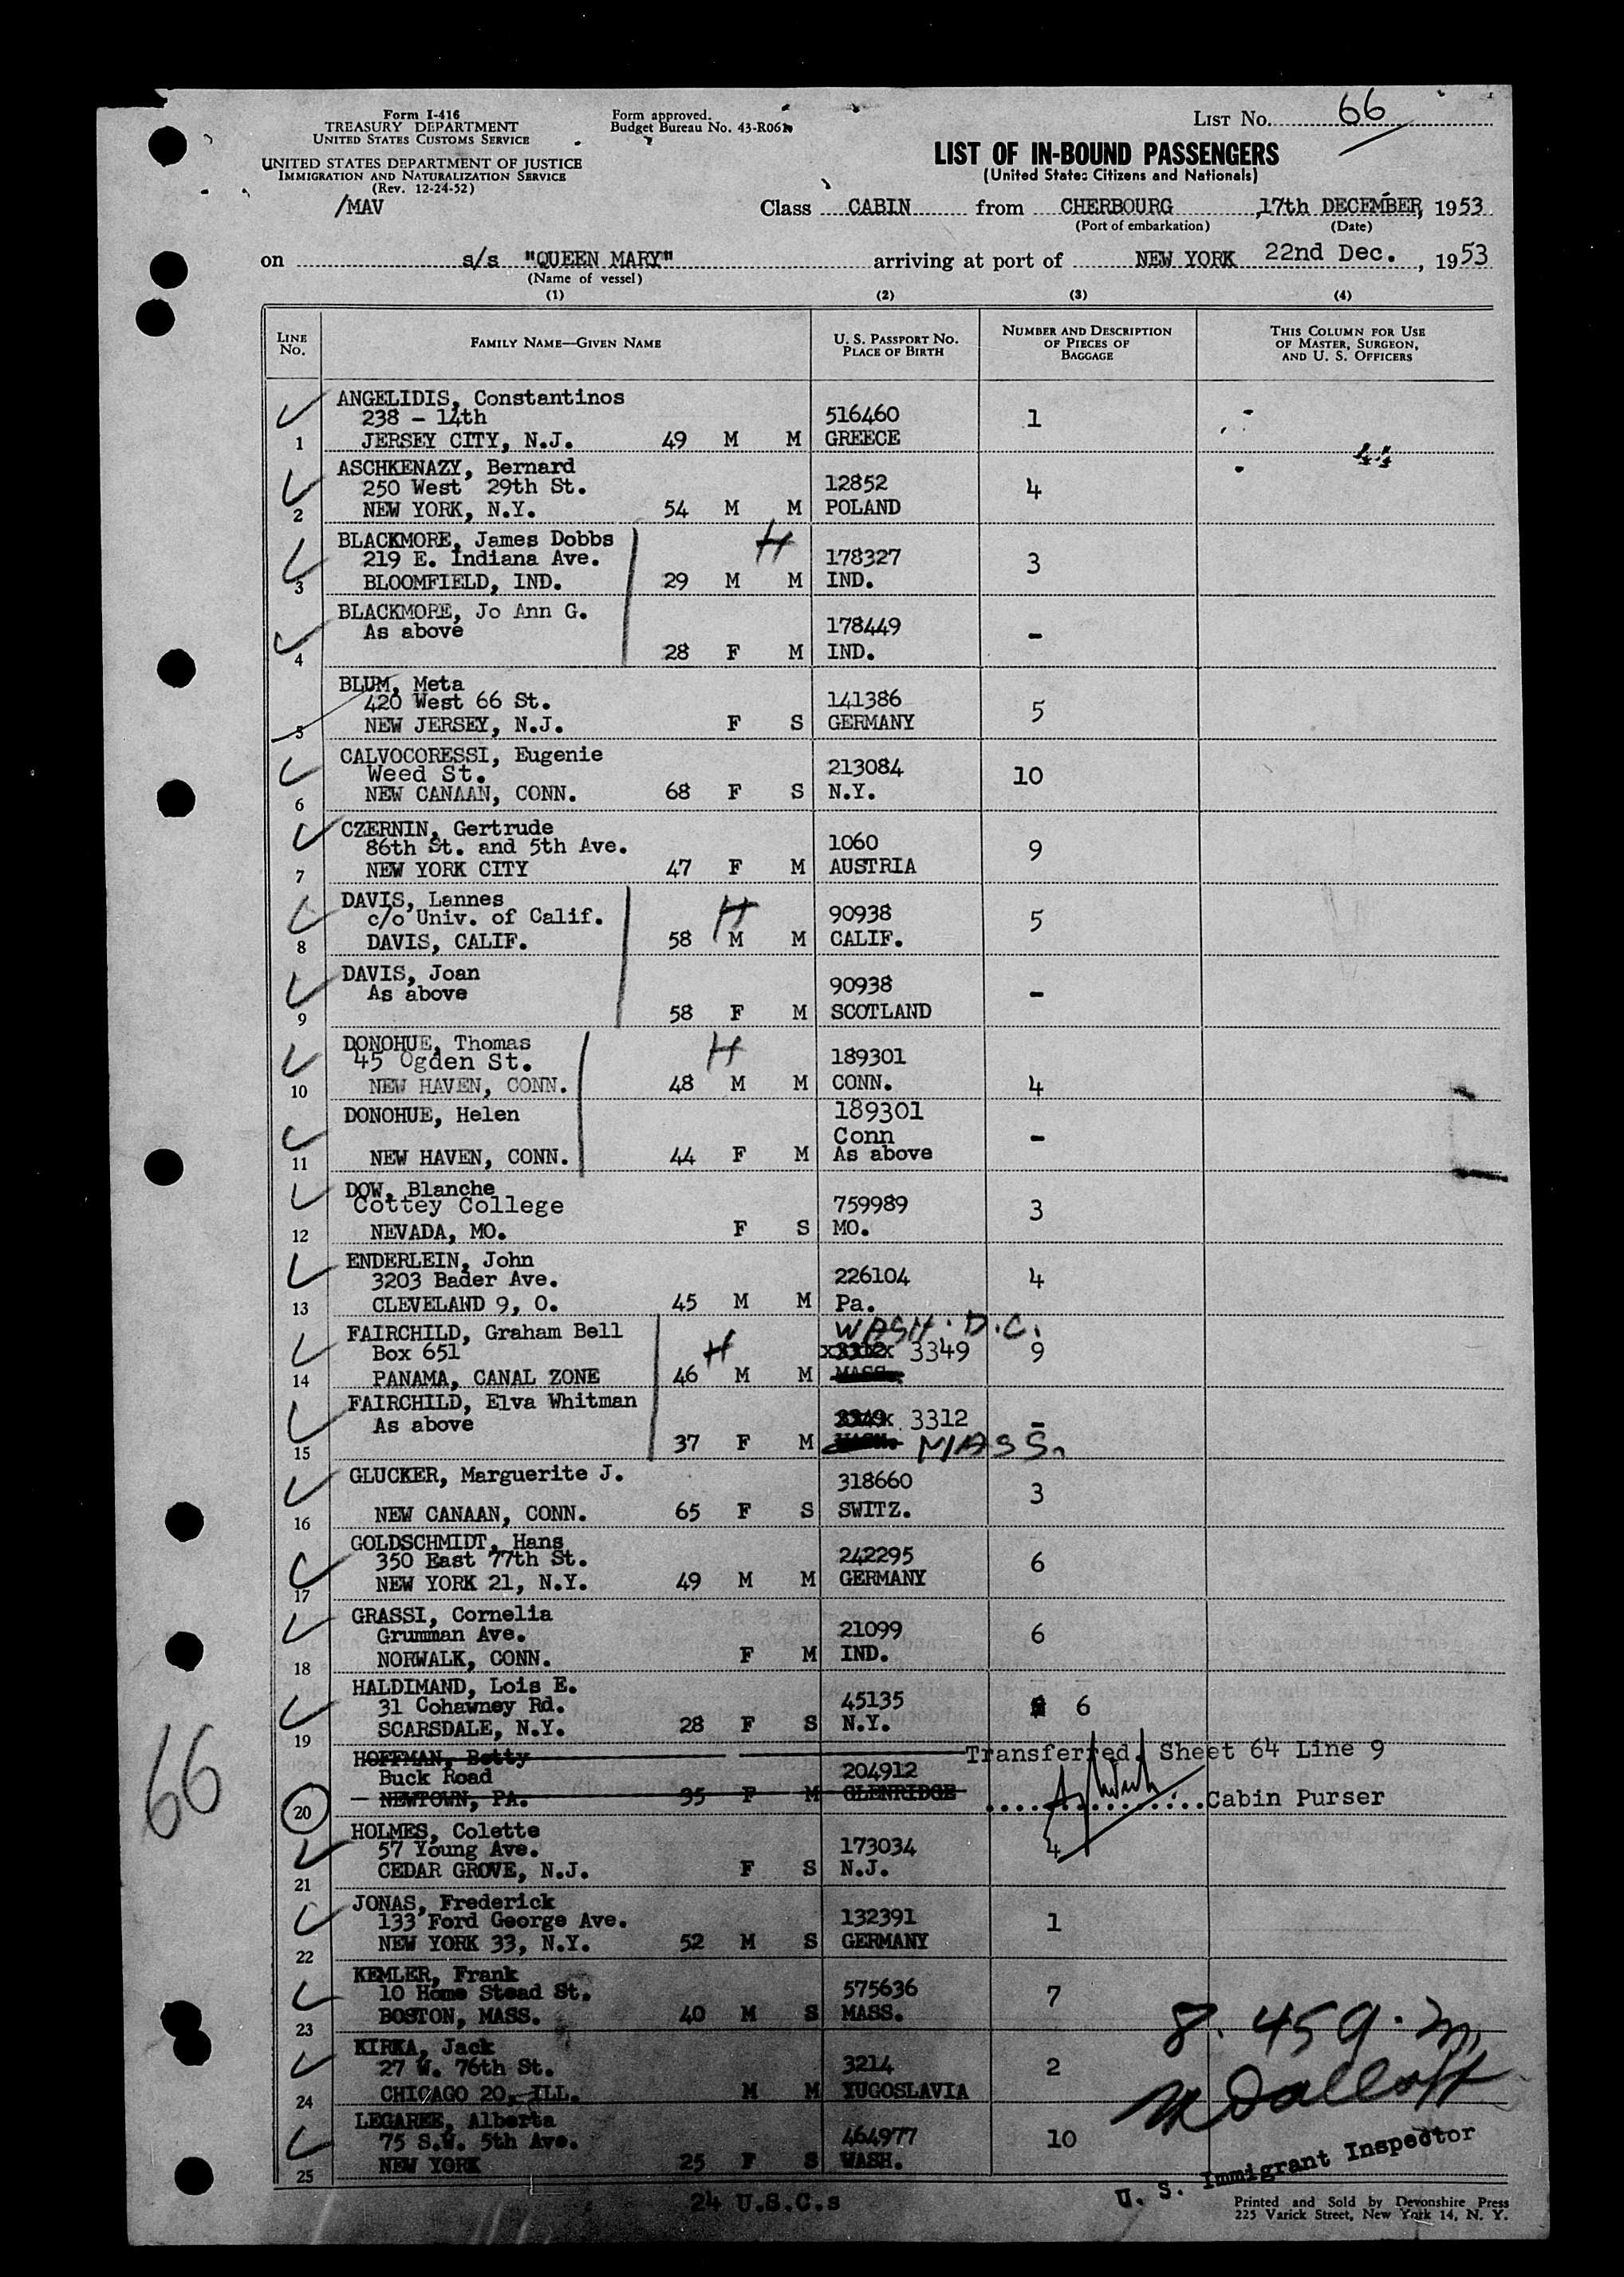 Form I-416
TREASURY DEPARTMENT
UNITED STATES CUSTOMS SERVICE
UNITED STATES DEPARTMENT OF JUSTICE
IMMIGRATION AND NATURALIZATION SERVICE
(Rev. 12-24-52)
/MAV
Form approved.
Budget Bureau No. 43-R061
LIST No. 66
LIST OF IN-BOUND PASSENGERS
(United States Citizens and Nationals)
Class CABIN from CHERBOURG ,17th DECEMBER, 1953
(Port of embarkation) (Date)
on s/s "QUEEN MARY" arriving at port of NEW YORK 22nd Dec. , 1953
(Name of vessel)
(1) (2) (3) (4)
LINE No. FAMILY NAME—GIVEN NAME U. S. PASSPORT No. PLACE OF BIRTH NUMBER AND DESCRIPTION OF PIECES OF BAGGAGE THIS COLUMN FOR USE OF MASTER, SURGEON, AND U. S. OFFICERS
ANGELIDIS, Constantinos
238 - 14th 516460 1
1 JERSEY CITY, N.J. 49 M M GREECE
ASCHKENAZY, Bernard
250 West 29th St. 12852 4
2 NEW YORK, N.Y. 54 M M POLAND
BLACKMORE, James Dobbs H
219 E. Indiana Ave. 178327 3
3 BLOOMFIELD, IND. 29 M M IND.
BLACKMORE, Jo Ann G.
As above 178449 -
4 28 F M IND.
BLUM, Meta
420 West 66 St. 141386 5
5 NEW JERSEY, N.J. F S GERMANY
CALVOCORESSI, Eugenie
Weed St. 213084 10
6 NEW CANAAN, CONN. 68 F S N.Y.
CZERNIN, Gertrude
86th St. and 5th Ave. 1060 9
7 NEW YORK CITY 47 F M AUSTRIA
DAVIS, Lannes H
c/o Univ. of Calif. 90938 5
8 DAVIS, CALIF. 58 M M CALIF.
DAVIS, Joan
As above 90938 -
9 58 F M SCOTLAND
DONOHUE, Thomas H
45 Ogden St. 189301
10 NEW HAVEN, CONN. 48 M M CONN. 4
DONOHUE, Helen 189301
Conn -
11 NEW HAVEN, CONN. 44 F M As above
DOW, Blanche
Cottey College 759989 3
12 NEVADA, MO. F S MO.
ENDERLEIN, John
3203 Bader Ave. 226104 4
13 CLEVELAND 9, O. 45 M M Pa.
FAIRCHILD, Graham Bell WASH. D.C.
Box 651 H 3312 3349 9
14 PANAMA, CANAL ZONE 46 M M MASS.
FAIRCHILD, Elva Whitman
As above 3349 3312 -
15 37 F M MASS.
GLUCKER, Marguerite J. 318660 3
16 NEW CANAAN, CONN. 65 F S SWITZ.
GOLDSCHMIDT, Hans
350 East 77th St. 242295 6
17 NEW YORK 21, N.Y. 49 M M GERMANY
GRASSI, Cornelia
Grumman Ave. 21099 6
18 NORWALK, CONN. F M IND.
HALDIMAND, Lois E.
31 Cohawney Rd. 45135 6
19 SCARSDALE, N.Y. 28 F S N.Y.
HOFFMAN, Betty Transferred Sheet 64 Line 9
Buck Road 204912
20 NEWTOWN, PA. 35 F M GLENRIDGE Cabin Purser
HOLMES, Colette
57 Young Ave. 173034 4
21 CEDAR GROVE, N.J. F S N.J.
JONAS, Frederick
133 Ford George Ave. 132391 1
22 NEW YORK 33, N.Y. 52 M S GERMANY
KEMLER, Frank
10 Home Stead St. 575636 7
23 BOSTON, MASS. 40 M S MASS.
KIRKA, Jack
27 W. 76th St. 3214 2
24 CHICAGO 20, ILL. M M YUGOSLAVIA
LEGAREE, Alberta
75 S.W. 5th Ave. 464977 10
25 NEW YORK 25 F S WASH.
66
24 U.S.C.s
U. S. Immigrant Inspector
Printed and Sold by Devonshire Press
225 Varick Street, New York 14, N. Y.